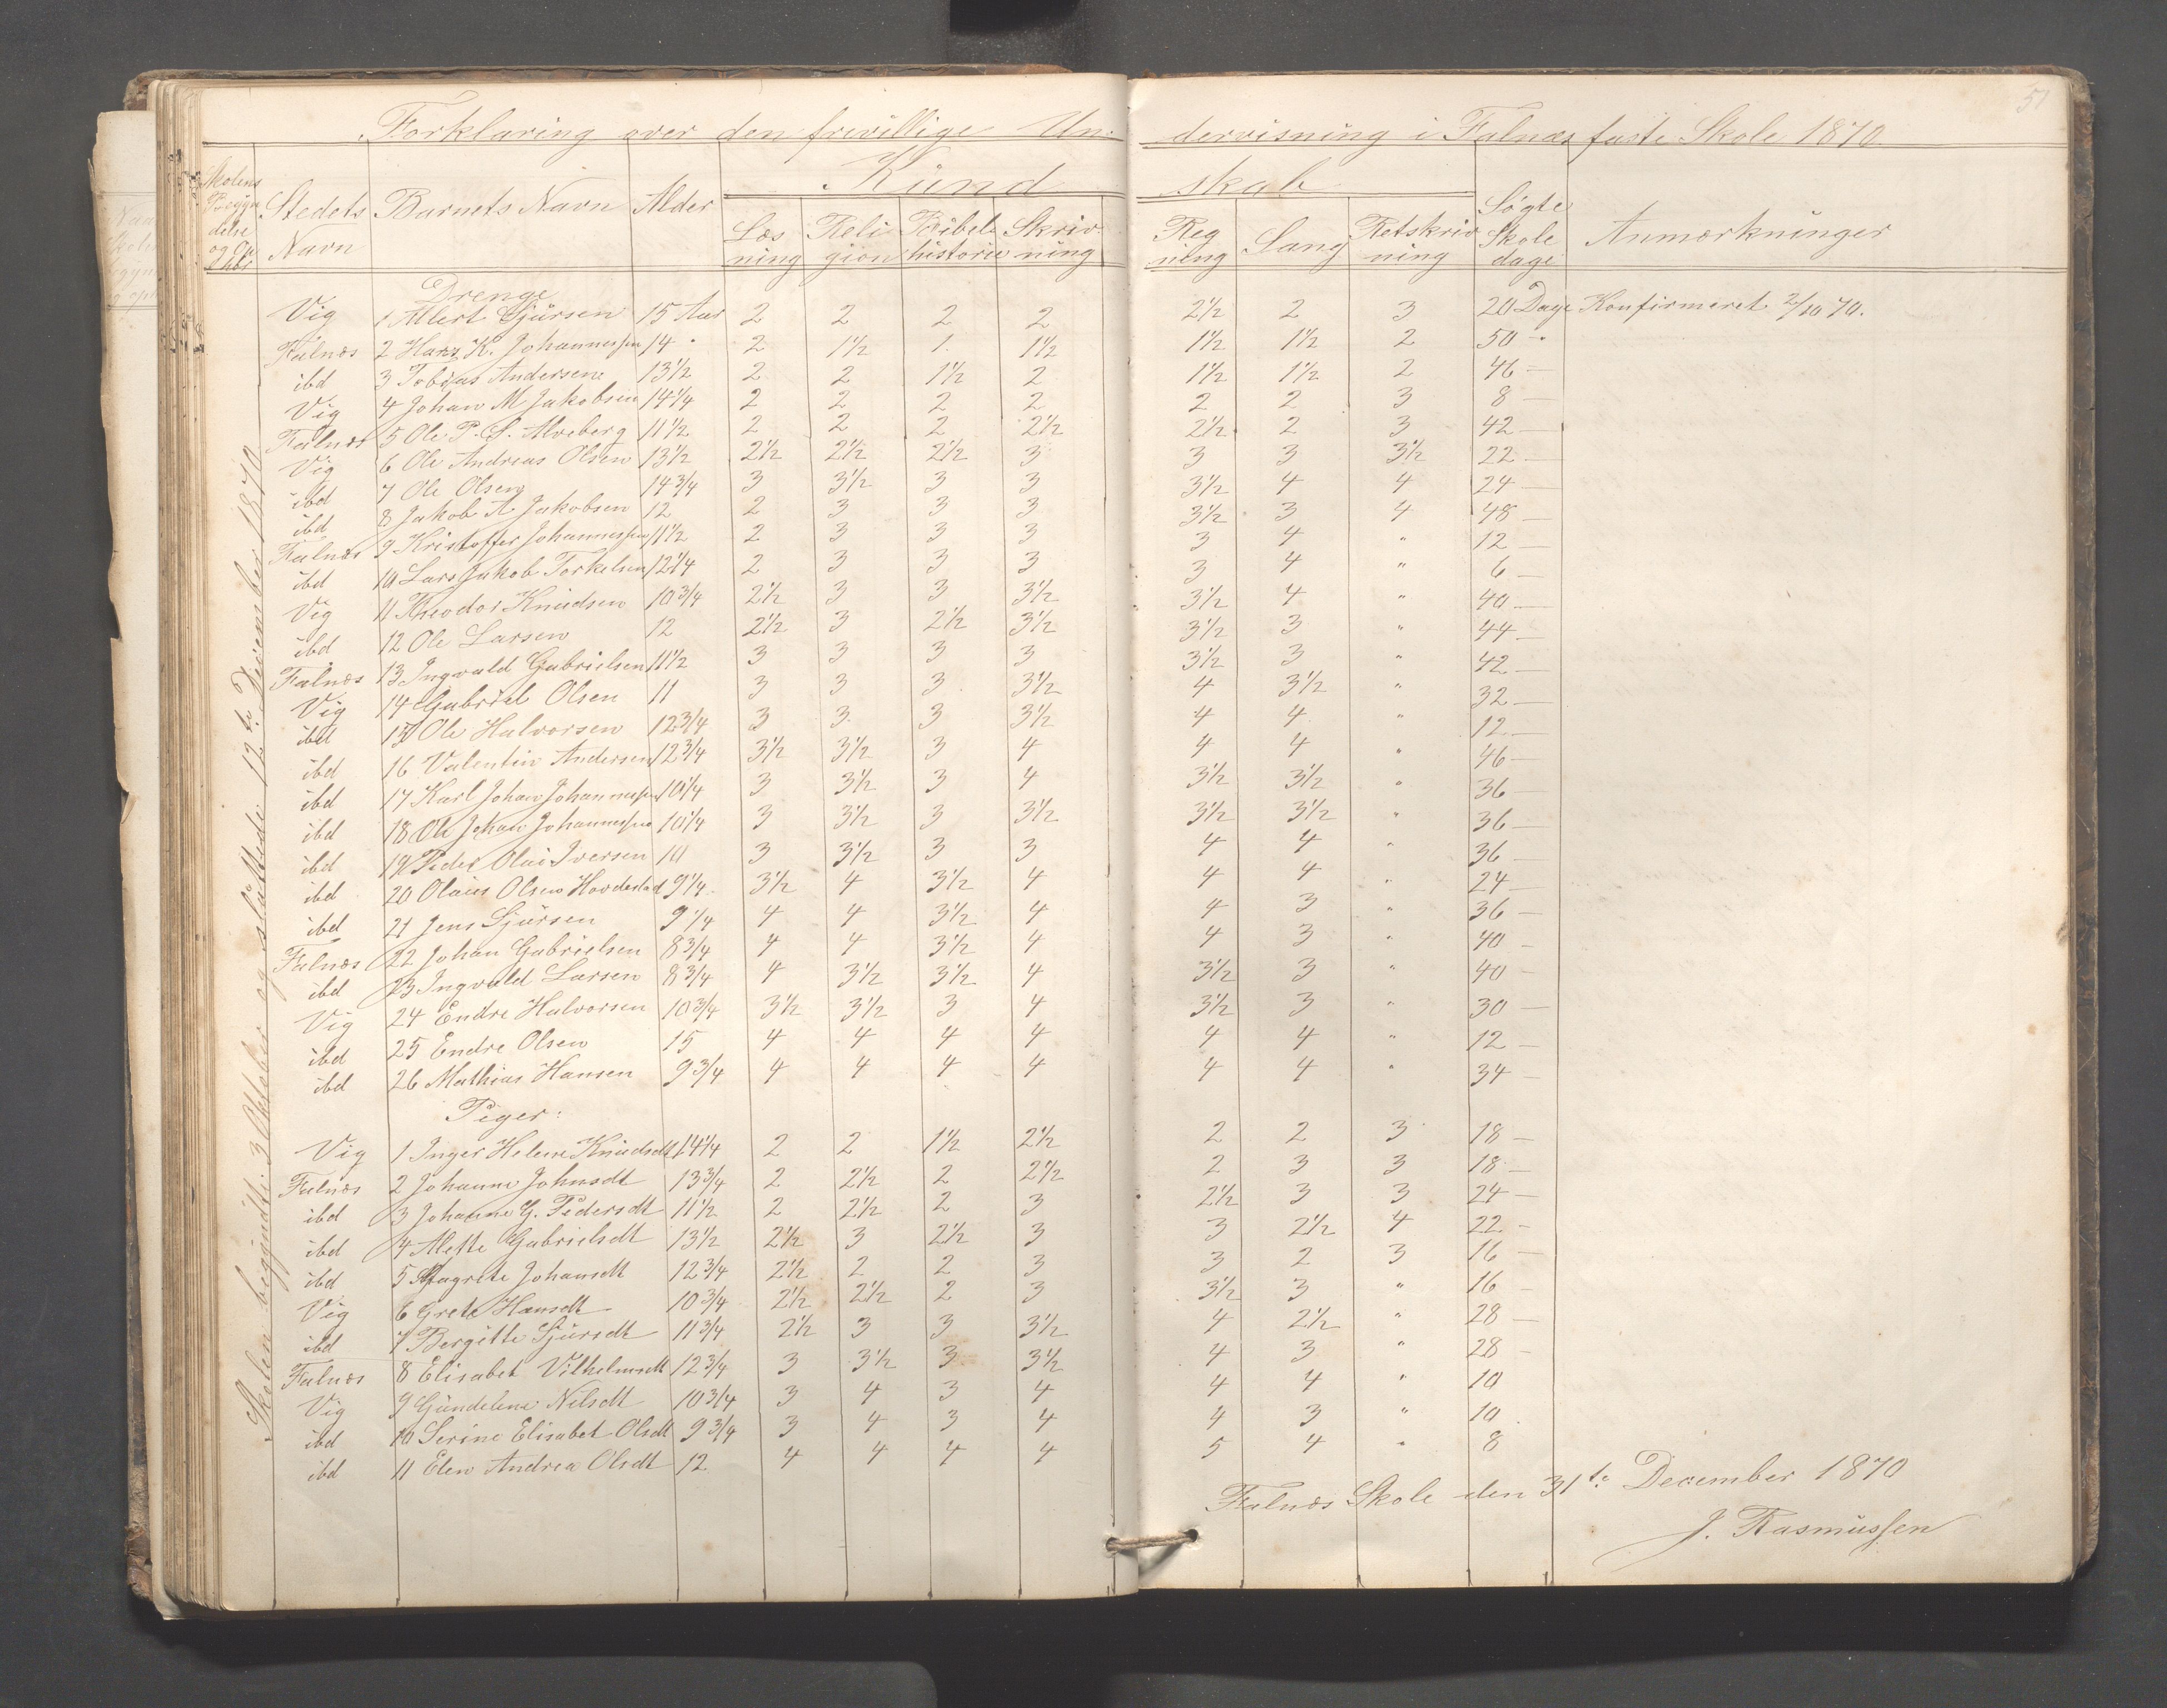 51
Forklaring over den frivillige Un- dervisning i Falnæs faste Skole 1870.
Skolens Begyn delse og
Stedets Navn
Barnets Navn
Alder
Kund skab
Læs ning
Reli gion
Bibel historie
Skriv ning
Reg ning
Sang
Retskriv ning
Søgte Skole dage
Anmærkninger
Skolen begyndte 3 Oktober og sluttede 12te December 1870
Drenge
Vig 1 Alert Sjursen 15 Aar 2 2 2 2 2½ 2 3 20 Dage Konfirmeret 2/10 70.
Falnæs 2 Hans K. Johannessen 14 " 2 1½ 1 1½ 1½ 1½ 2 50 "
ibd 3 Tobias Andersen 13½ 2 2 1½ 2 1½ 1½ 2 46 —
Vig 4 Johan M Jakobsen 14¼ 2 2 2 2 2 2 3 8 —
Falnæs 5 Ole P. S. Alveberg 11½ 2 2 2 2½ 2½ 2 3 42 —
Vig 6 Ole Andreas Olsen 13½ 2½ 2½ 2½ 3 3 3 3½ 22 —
ibd 7 Ole Olsen 14¾ 3 3½ 3 3 3½ 4 4 24 —
ibd 8 Jakob A Jakobsen 12 2 3 3 3 3½ 3 4 48 —
Falnæs 9 Kristoffer Johannessen 11½ 2 3 3 3 3 4 " 12 —
ibd 10 Lars Jakob Torkelsen 12¼ 2 3 3 3 3 4 " 6 —
Vig 11 Theodor Knudsen 10¾ 2½ 3 3 3½ 3½ 4 " 40 —
ibd 12 Ole Larsen 12 2½ 3 2½ 3½ 3½ 3 " 44 —
Falnæs 13 Ingvald Gabrielsen 11½ 3 3 3 3 3½ 3 " 42 —
Vig 14 Gabriel Olsen 11 3 3 3 3½ 4 3½ " 32 —
ibd 15 Ole Halvorsen 12¾ 3 3 3 3½ 4 4 " 12 —
ibd 16 Valentin Andersen 12¾ 3½ 3½ 3 4 4 4 " 46 —
ibd 17 Karl Johan Johannessen 10¼ 3 3½ 3 4 3½ 3½ " 36 —
ibd 18 Ole Johan Johannessen 10¼ 3 3½ 3 3½ 3½ 3½ " 36 —
ibd 19 Peder Olai Iversen 10 3 3½ 3 3 4 4 " 36 —
ibd 20 Olaus Olsen Hovdestad 9¼ 3½ 4 3½ 4 4 4 " 24 —
ibd 21 Jens Sjursen 9¼ 4 4 3½ 4 4 3 " 36 —
Falnæs 22 Johan Gabrielsen 8¾ 4 4 3½ 4 4 3 " 40 —
ibd 23 Ingvald Larsen 8¾ 4 3½ 3½ 4 3½ 3 " 40 —
Vig 24 Endre Halvorsen 10¾ 3½ 3½ 3 4 3½ 3 " 30 —
ibd 25 Endre Olsen 15 4 4 4 4 4 4 " 12 —
ibd 26 Mathias Hansen 9¾ 4 4 4 4 4 4 " 34 —
Piger:
Vig 1 Inger Helene Knudsdt 14¼ 2 2 1½ 2½ 2 2 3 18 —
Falnæs 2 Johanne Johnsdt 13¾ 2 2½ 2 2½ 2 3 3 18 —
ibd 3 Johanne G. Pedersdt 11½ 2 2½ 2 3 2½ 3 3 24 —
ibd 4 Alette Gabrielsdt 13½ 2½ 3 2½ 3 3 2½ 4 22 —
ibd 5 Magrete Johansdt 12¾ 2½ 2 2 3 3 2 3 16 —
Vig 6 Grete Hansdt 10¾ 2½ 2½ 2 3 3½ 3 " 16 —
ibd 7 Bergitte Sjursdt 11¾ 2½ 3 3 3½ 4 2½ " 28 —
Falnæs 8 Elisabet Vilhelmsdt 12¾ 3 3½ 3 3½ 4 3 " 28 —
Vig 9 Gundeline Nilsdt 10¾ 3 4 3 4 4 4 " 10
ibd 10 Serine Elisabet Olsdt 9¾ 3 4 3 4 4 3 " 10
ibd 11 Elen Andrea Olsdt 12 4 4 4 4 5 4 " 8
Falnæs Skole den 31te December 1870
J. Rasmussen